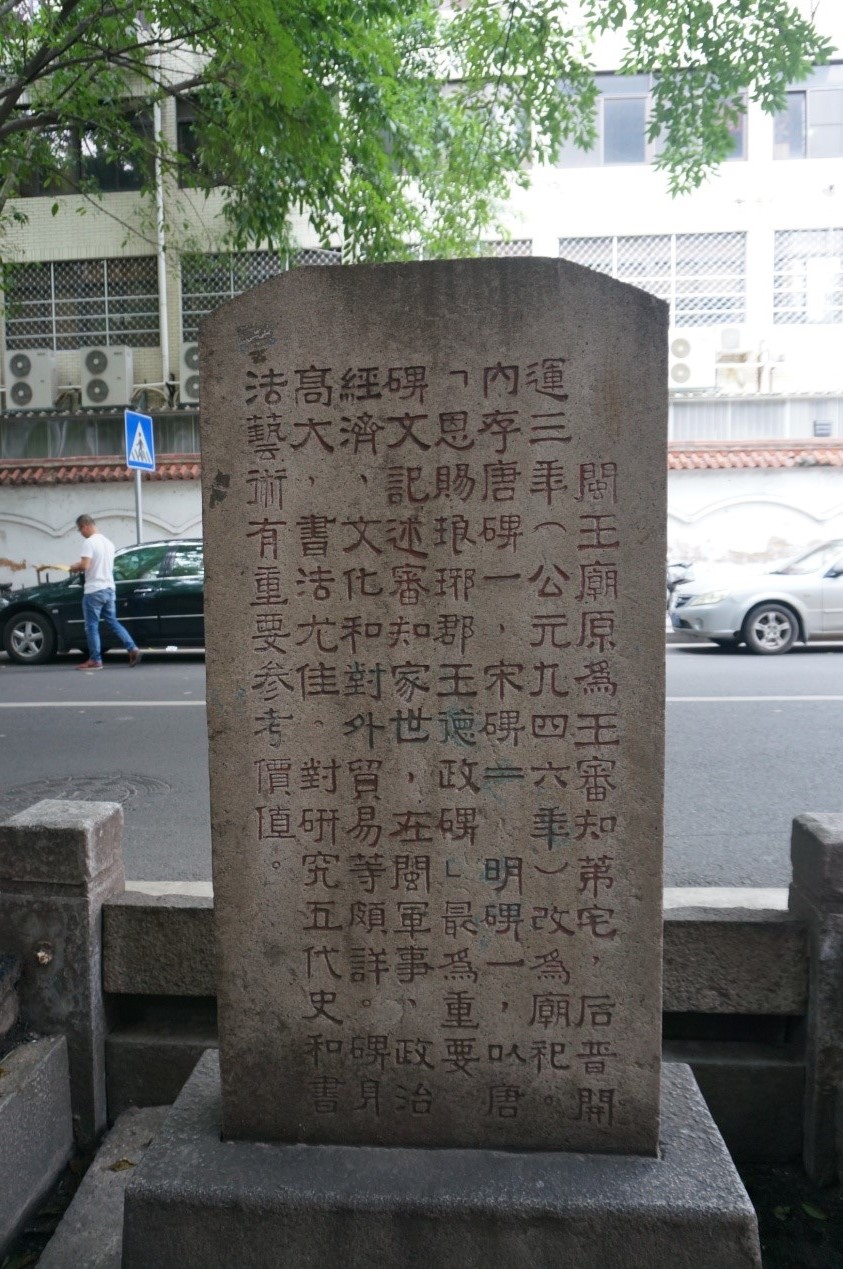 閩王廟原爲王審知第宅，后晋開
運三年（公元九四六年）改爲廟祀。
内存唐碑一，宋碑二、明碑一，以唐
「恩賜琅琊郡王德政碑」最爲重要
碑文記述審知家世，在閩軍事、政治
經濟、文化和對外貿易等頗詳。碑身
高大，書法尤佳。對研究五代史和書
法藝術有重要参考價值。